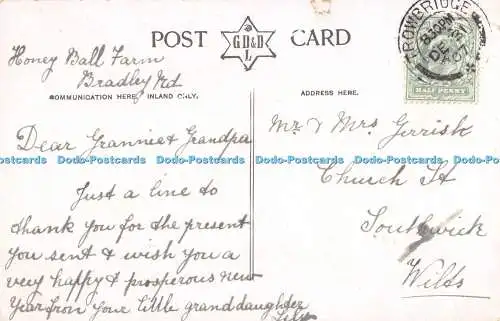 Honey Ball Farm
Bradley Rd
POST CARD
G.D.&D.
L
COMMUNICATION HERE, INLAND ONLY.
ADDRESS HERE.
TROWBRIDGE
8.30 PM
DE
HALF PENNY
Dear Grannie & Grandpa
Just a line to
thank you for the present
you sent & wish you a
very happy & prosperous new
Year from your little granddaughter
Lily
Mr & Mrs Gerrish
Church St
Southwick
Wilts
Dodo-Postcards Dodo-Postcards Dodo-Postcards Dodo-Postcards
Dodo-Postcards Dodo-Postcards Dodo-Postcards Dodo-Postcards